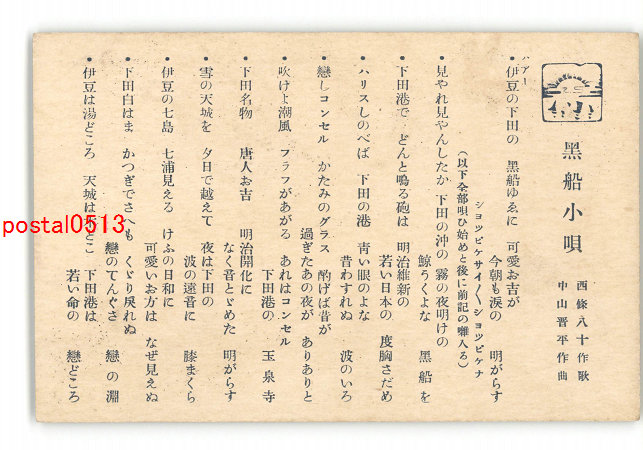 黒船小唄
西條八十作歌
中山晋平作曲
ハアー
伊豆の下田の 黒船ゆゑに 可愛お吉が
今朝も涙の 明がらす
ショツピケサイ〳〵ショツピケナ
(以下全部唄ひ始めと後に前記の囃入る)
見やれ見やんしたか 下田の沖の 霧の夜明けの
鯨うくよな 黒船を
下田港で どんと鳴る砲は 明治維新の
若い日本の 度胸さだめ
ハリスしのべば 下田の港 青い眼のよな
昔わすれぬ 波のいろ
戀しコンセル かたみのグラス 酌げば昔が
過ぎたあの夜が ありありと
吹けよ潮風 フラフがあがる あれはコンセル
下田港の 玉泉寺
下田名物 唐人お吉 明治開化に
なく音とゞめた 明がらす
雪の天城を 夕日で越えて 夜は下田の
波の遠音に 膝まくら
伊豆の七島 七浦見える けふの日和に
可愛いお方は なぜ見えぬ
下田白はま かつぎでさへも くゞり戻れぬ
戀のてんぐさ 戀の淵
伊豆は湯どころ 天城は どこ 下田港は
若い命の 戀どころ
postal0513